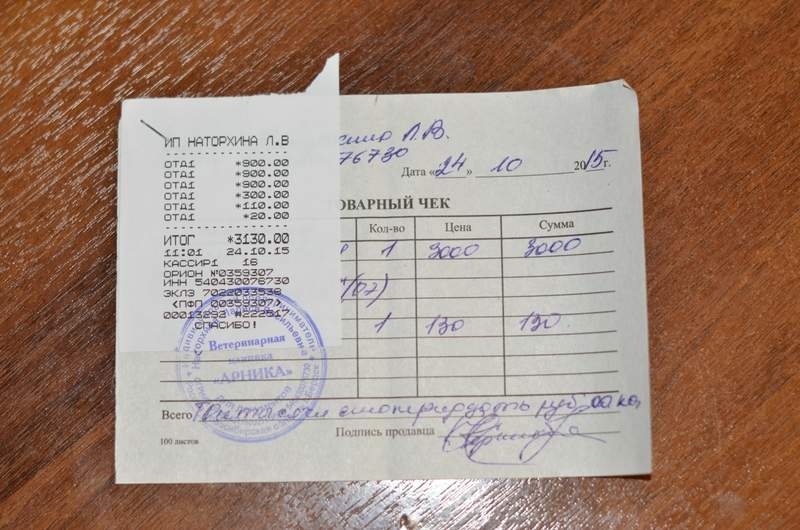 ИП НАТОРХИНА Л.В
ОТД1 *900.00
ОТД1 *900.00
ОТД1 *900.00
ОТД1 *300.00
ОТД1 *110.00
ОТД1 *20.00
ИТОГ *3130.00
11:01 24.10.15
КАССИР1 16
ОРИОН №0359307
ИНН 540430076730
ЭКЛЗ 7022033538
<ПФП 00359307>
00013292 #222517
СПАСИБО!
Л.В.
76730
Дата «24» 10 2015г.
ОВАРНЫЙ ЧЕК
Кол-во Цена Сумма
1 3000 3000
1 130 130
Ветеринарная
клиника
«АРНИКА»
Всего Три тысячи сто тридцать руб. 00 коп
Подпись продавца
100 листов